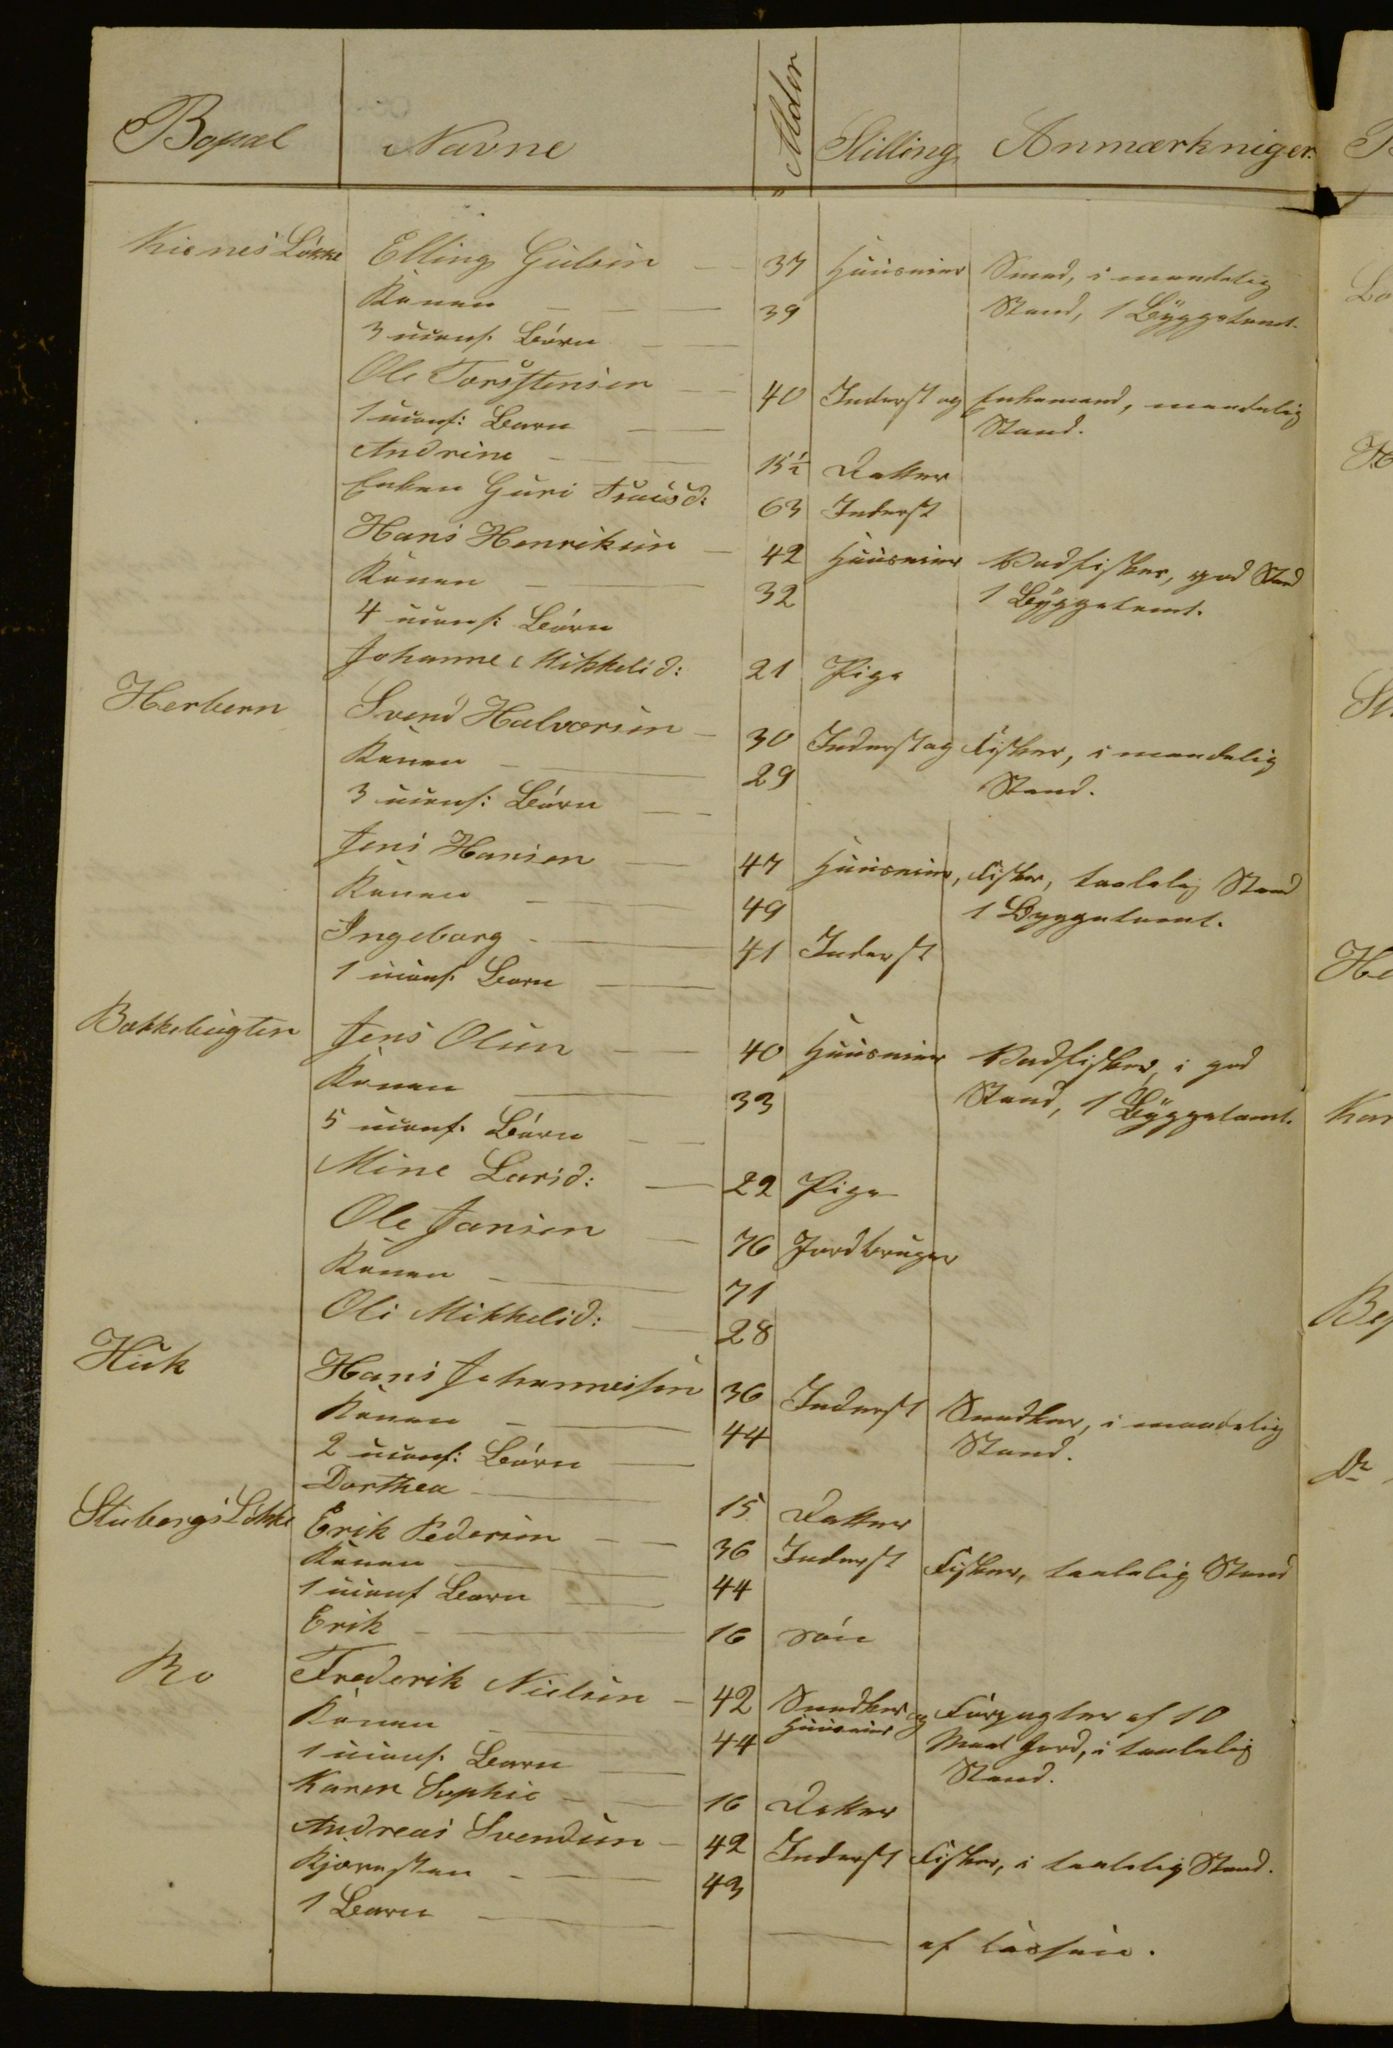 Bopæl Navne Alder Stilling Anmærkniger.
Kienes Løkke Elling Gulsen 37 Huusmier Smed, i maadelig
Konen 39 Stand, 1 Byggetomt.
3 uconf. Børn
Ole Torsstensen 40 Inderst og Enkemand, maadelig
1 uconf: Barn Stand.
Andrine 15½ Datter
Enken Guri 63 Inderst
Hans Henriksen 42 Huusmier Vadfisker, god Stand
Konen 32 1 Byggetomt.
4 uconf: Børn
Johanne Mikkelsd: 21 Pige
Herbern Svend Halvorsen 30 Inderst og Fisker, i maadelig
Konen 29 Stand.
3 uconf: Børn
Jens Hansen 47 Huusmier, Fisker, taalelig Stand
Konen 49 1 Byggetomt.
Ingeborg 41 Inderst
1 uconf. Barn
Bækkebugten Jens Olsen 40 Huusmier Vadfisker, i god
Konen 33 Stand, 1 Byggetomt.
5 uconf. Børn
Mine Larsd: 22 Pige
Ole Jansen 76 Jordbruger
Konen 71
Oli Mikkelsd: 28
Huk Hans Johannessen 36 Inderst Snedker, i maadelig
Konen 44 Stand.
2 uconf: Børn
Dorthea 15 Datter
Stubergs Løkke Erik Pedersen 36 Inderst Fisker, taalelig Stand
Konen 44
1 uconf Barn
Erik 16 Søn
Ro Frederik Nielsen 42 Snedker og Forpagter af 10
Konen 44 Huusmier Maal Jord, i taalelig
1 uconf. Barn Stand.
Karen Sophie 16 Datter
Andreas Svendsen 42 Inderst Fisker, i taalelig Stand.
Kjæresten 43
1 Barn
af